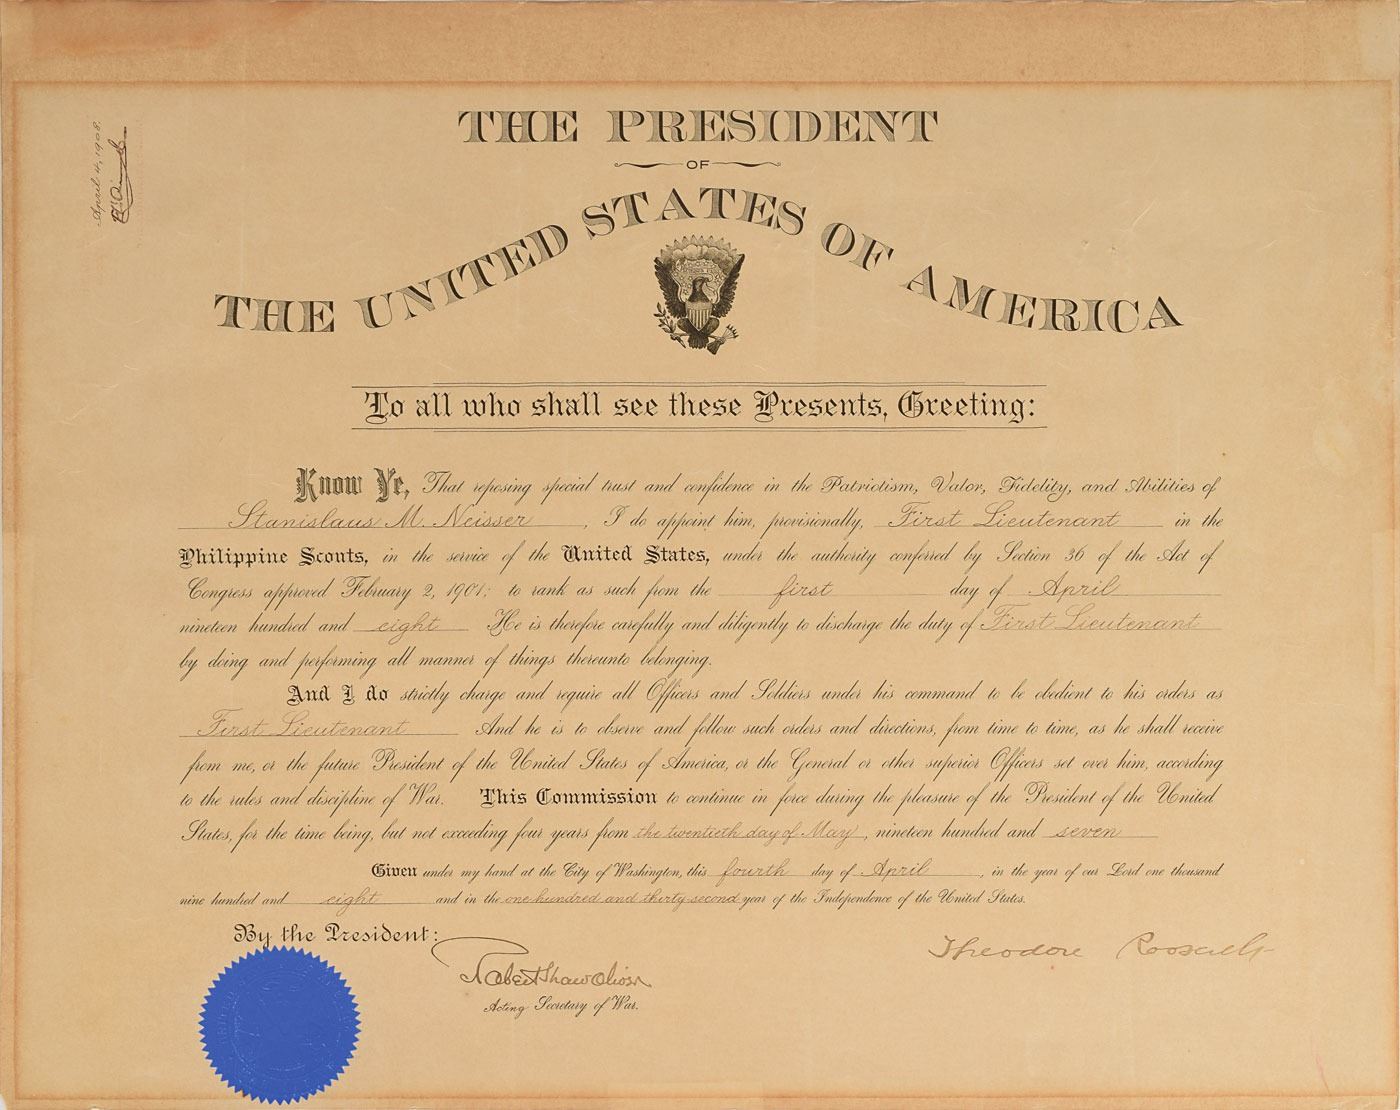 April 4, 1908.
THE PRESIDENT
OF
THE UNITED STATES OF AMERICA
To all who shall see these Presents, Greeting:
Know Ye, That reposing special trust and confidence in the Patriotism, Valor, Fidelity, and Abilities of
Stanislaus M. Neisser, I do appoint him, provisionally, First Lieutenant in the
Philippine Scouts, in the service of the United States, under the authority conferred by Section 36 of the Act of
Congress approved February 2, 1901; to rank as such from the first day of April
nineteen hundred and eight He is therefore carefully and diligently to discharge the duty of First Lieutenant
by doing and performing all manner of things thereunto belonging.
And I do strictly charge and require all Officers and Soldiers under his command to be obedient to his orders as
First Lieutenant And he is to observe and follow such orders and directions, from time to time, as he shall receive
from me, or the future President of the United States of America, or the General or other superior Officers set over him, according
to the rules and discipline of War. This Commission to continue in force during the pleasure of the President of the United
States, for the time being, but not exceeding four years from the twentieth day of May, nineteen hundred and seven
Given under my hand at the City of Washington, this fourth day of April, in the year of our Lord one thousand
nine hundred and eight and in the one hundred and thirty-second year of the Independence of the United States.
By the President:
Theodore Roosevelt
Robert Shaw Oliver
Acting Secretary of War.